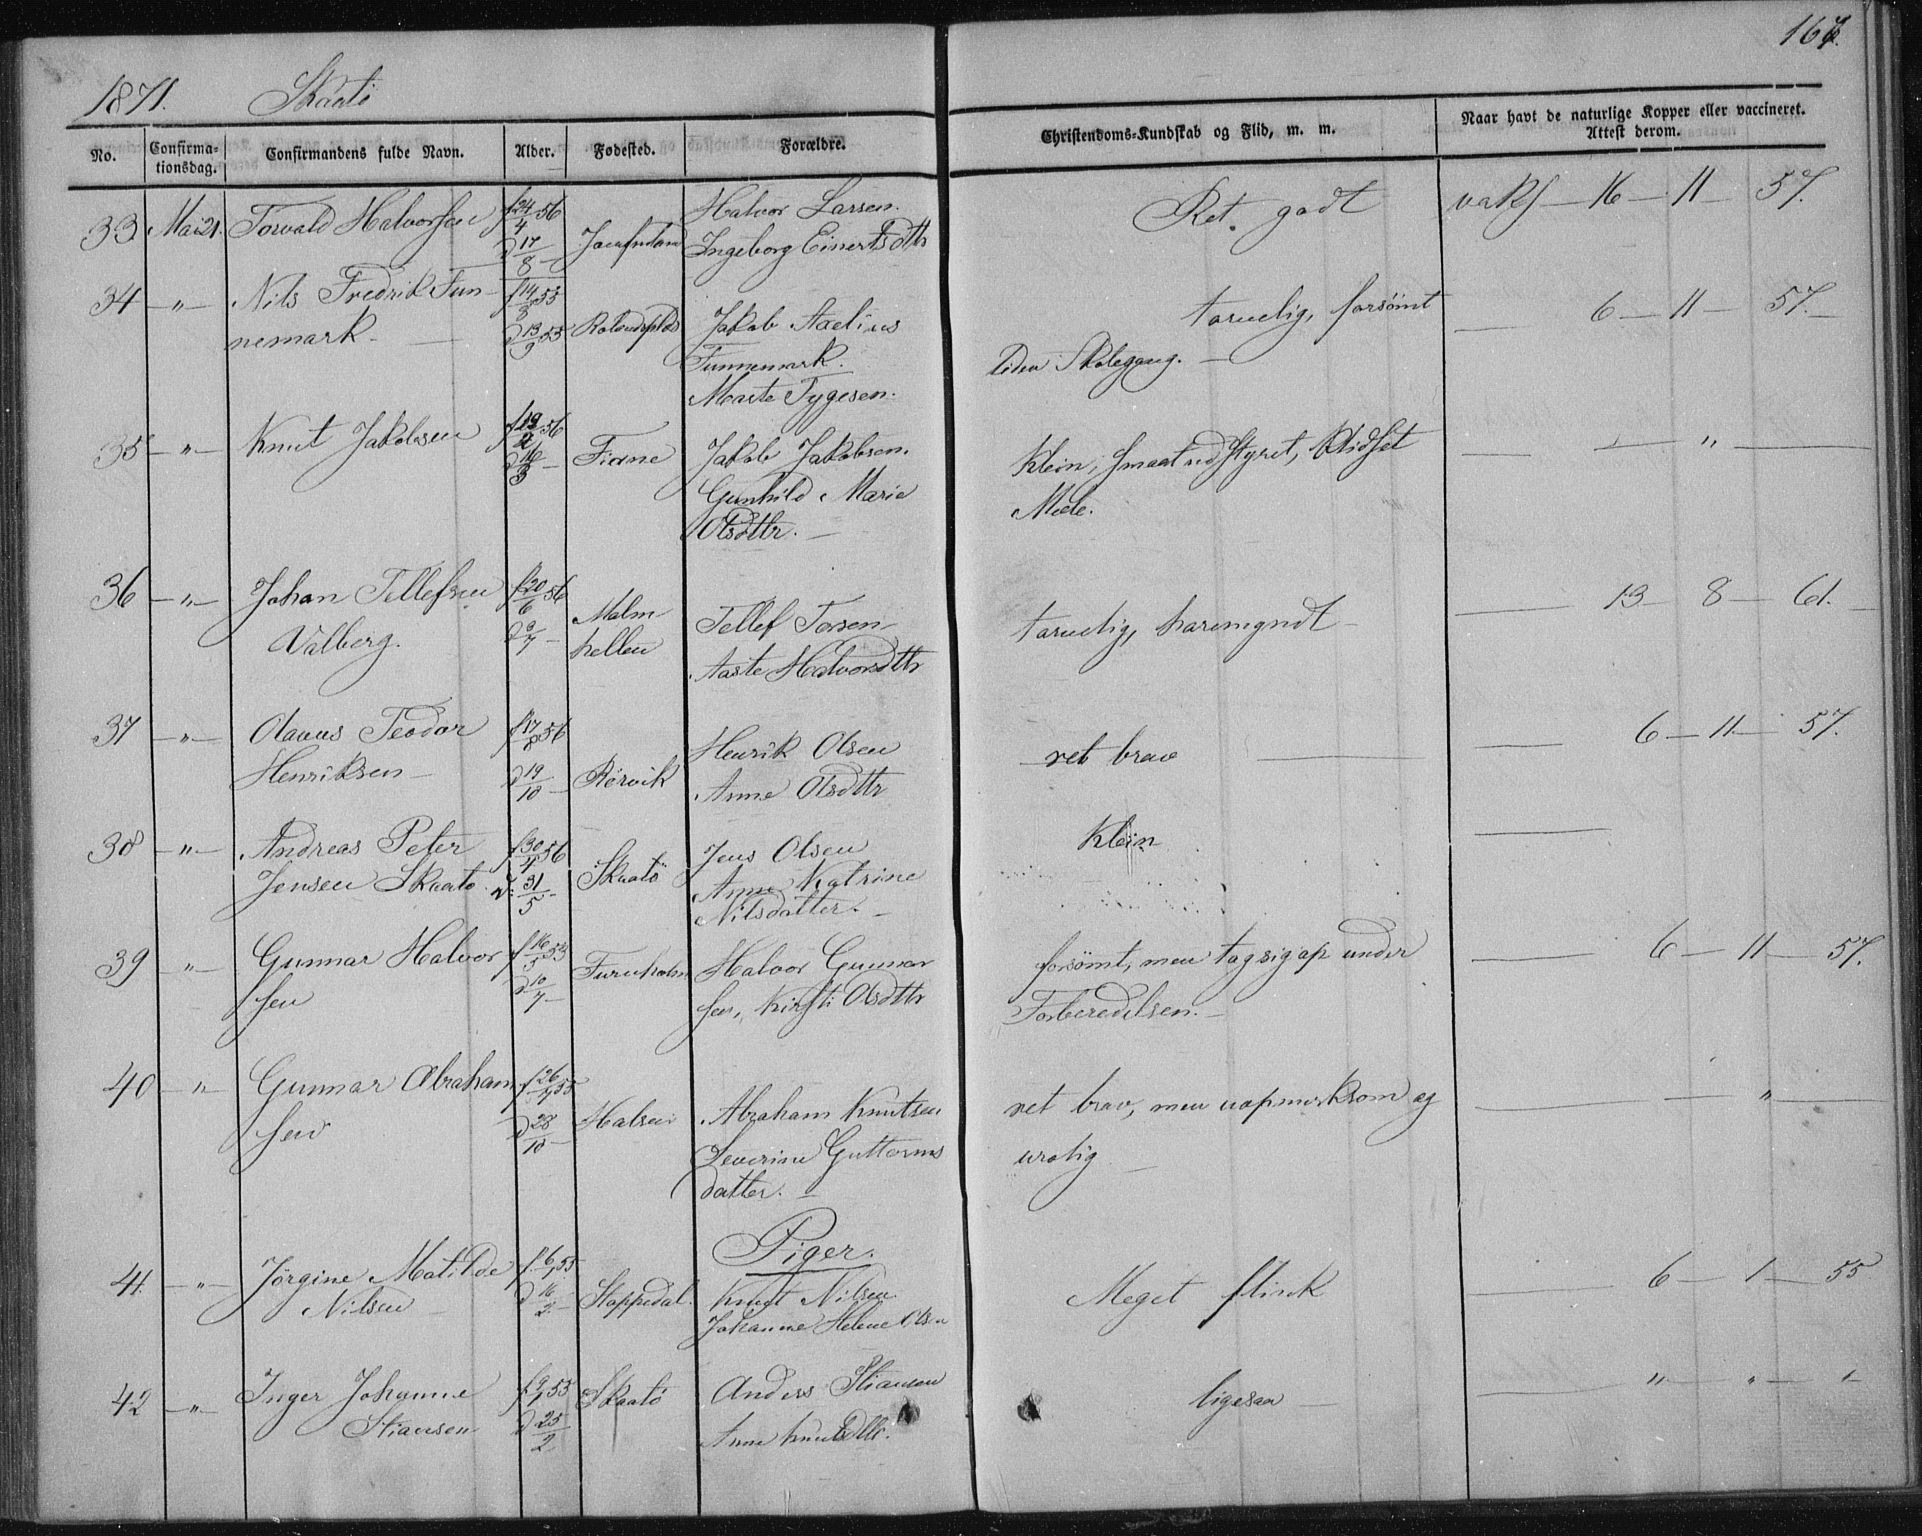 167.
1871. Skaatö
No. Confirma-tionsdag. Confirmandens fulde Navn. Alder. Fødested. Forældre. Christendoms-Kundskab og Flid, m. m. Naar havt de naturlige Kopper eller vaccineret. Attest derom.
33. Mai 21. Torvald Halvorsen f 24/4 56 Halvor Larsen. Ret godt vaks 16 — 11 — 57.
d 17/8 — Ingeborg Einertsdttr
34 — " — Nils Fredrik Tun- f 14/8 55 tarvelig, forsömt — 6 — 11 — 57. —
nemark — d 13/9 55 Jakob Axelius
Tunnemark. liden Skolegang. —
Marte Tygesen.
35 — " — Knut Jakobsen f 19/2 56 Fiane Jakob Jakobsen. Klein, smaat udstyret, — " —
d 16/3 — Gunhild Marie Mæle.
Olsdttr. —
36 — " — Johan Tellefsen f 20/6 56 Malm Tellef Torsen tarvelig, — 13 — 8 — 61. —
Valberg. d 9/7 — hellen Aaste Halvorsdttr
37 — " — Olavus Teodor f 17/8 56 Henrik Olsen ret brav — 6 — 11 — 57.
Henriksen — d 19/10 — Rörvik Anne Olsdttr
38 — " — Andreas Peter f 30/4 56 Skaatö Jens Olsen Klein —
Jensen Skaatö. d. 31/5 — Anne Katrine
Nilsdatter. —
39 " — Gunnar Halvor f 16/5 55 Furuholm Halvor Gunnar forsömt, men tog sig op under — 6 — 11 — 57.
sen d 10/7 — sen, Kirsti Olsdttr Forberedelsen. —
40 — " Gunnar Abraham f 26/7 55 Halsen Abraham Knutsen ret brav, men uopmerksom og — " —
sen d 28/10 — Severine Guttorms urolig —
datter. —
Piger.
41. — " — Jörgine Matilde f. 6/1 55 Stoppedal. Knut Nilsen. Meget flink — 6 — 1 — 55
Nilsen d 16/2 — Johanne Helene Olsen
42 — " — Inger Johanne f 9/1 55 Skaatö Anders Stiansen ligesaa — " — " —
Stiansen d 25/2 Anne Knutsdttr.